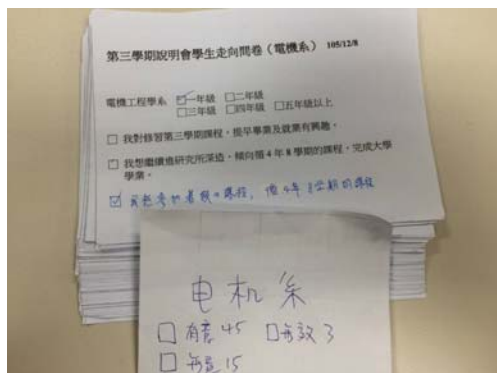 第三學期說明會學生走向問卷(電機系) 105/12/8
電機工程學系 ☑一年級 □二年級
□三年級 □四年級 □五年級以上
□ 我對修習第三學期課程,提早畢業及就業有興趣。
□ 我想繼續進研究所深造,傾向循4年8學期的課程,完成大學
學業。
☑ 我想參加暑假的課程, 4年8學期的課程
电机系
□ 有意 45 □ 無效 3
□ 無意 15